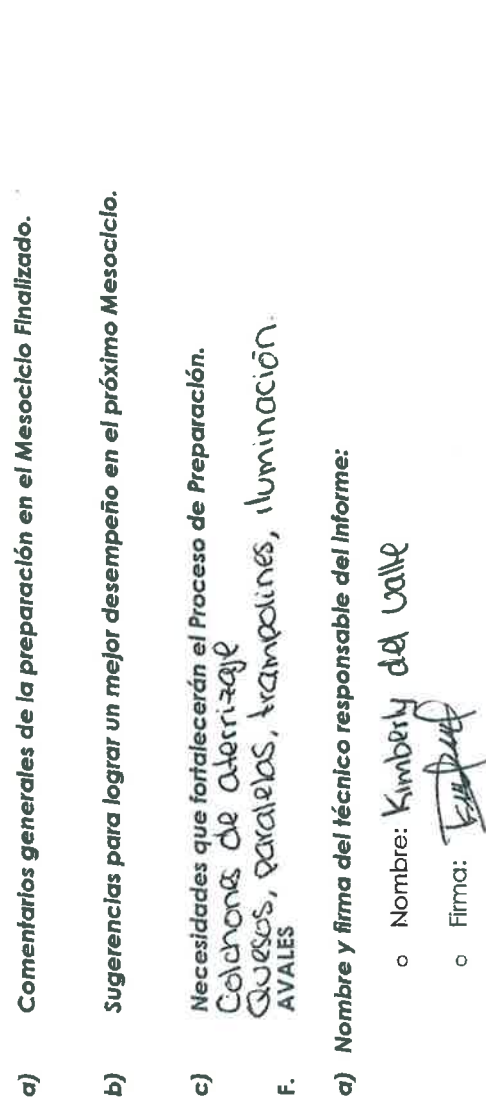 a) Comentarios generales de la preparación en el Mesociclo Finalizado.
b) Sugerencias para lograr un mejor desempeño en el próximo Mesociclo.
c) Necesidades que fortalecerán el Proceso de Preparación.
Colchones de aterrizaje
Quesos, paralelas, trampolines, iluminación.
F. AVALES
a) Nombre y firma del técnico responsable del Informe:
o Nombre: Kimberly del Valle
o Firma: